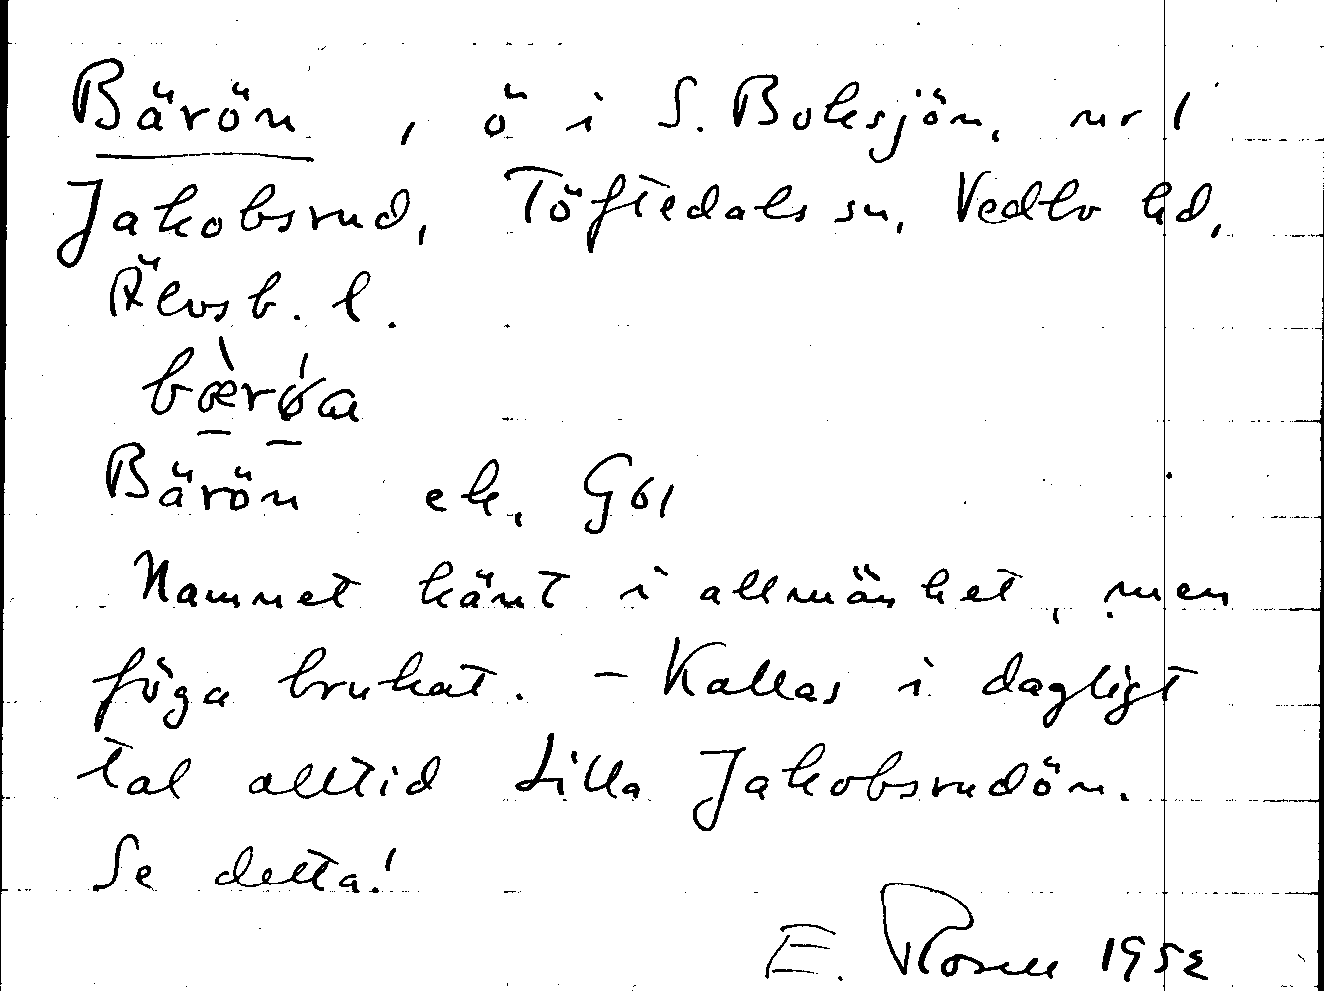 Bärön, ö i S. Boksjön, nr 1
Jakobsrud, Töftedals sn, Vedbo hd,
Älvsb. l.
bæ̀røa
Bärön ek, G 61
Namnet känt i allmänhet, men
föga brukat. – Kallas i dagligt
tal alltid Lilla Jakobsrudön.
Se detta!
E. Rosell 1952